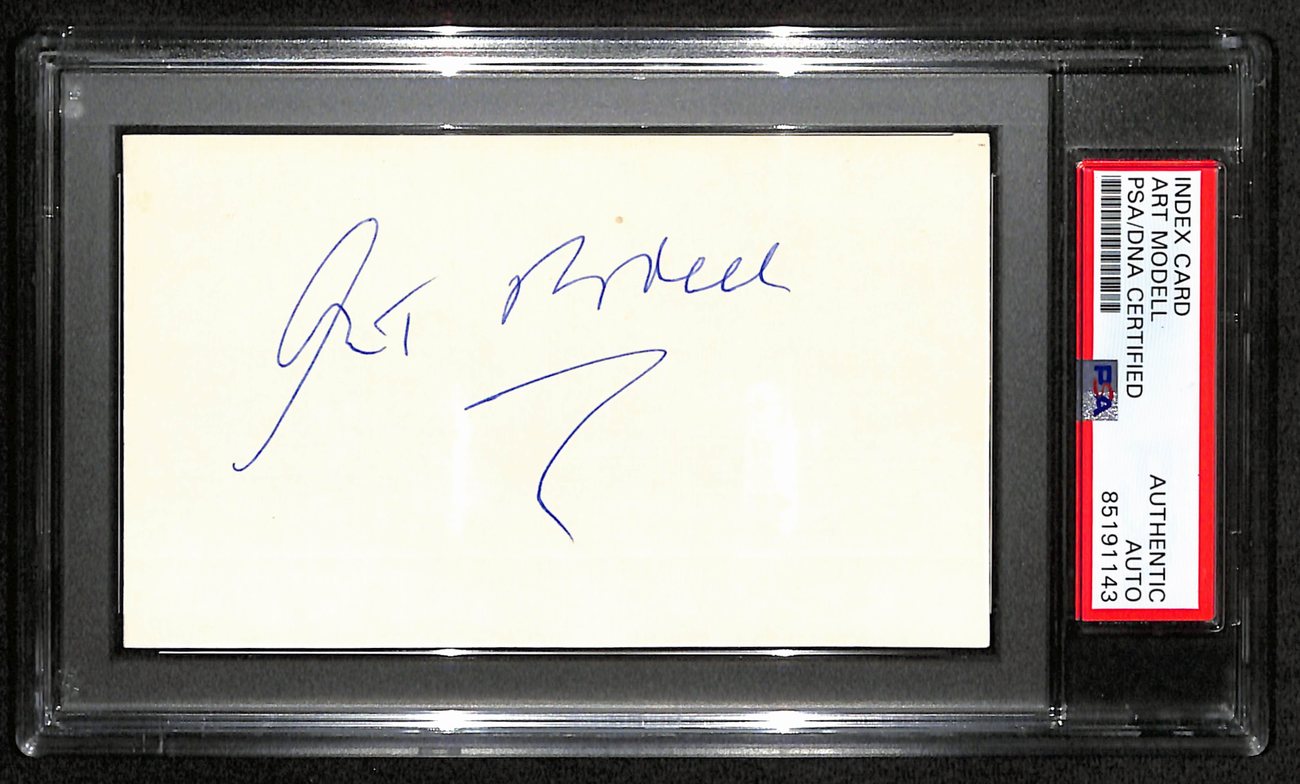 Art Modell
INDEX CARD
ART MODELL
PSA/DNA CERTIFIED
PSA
AUTHENTIC
AUTO
85191143